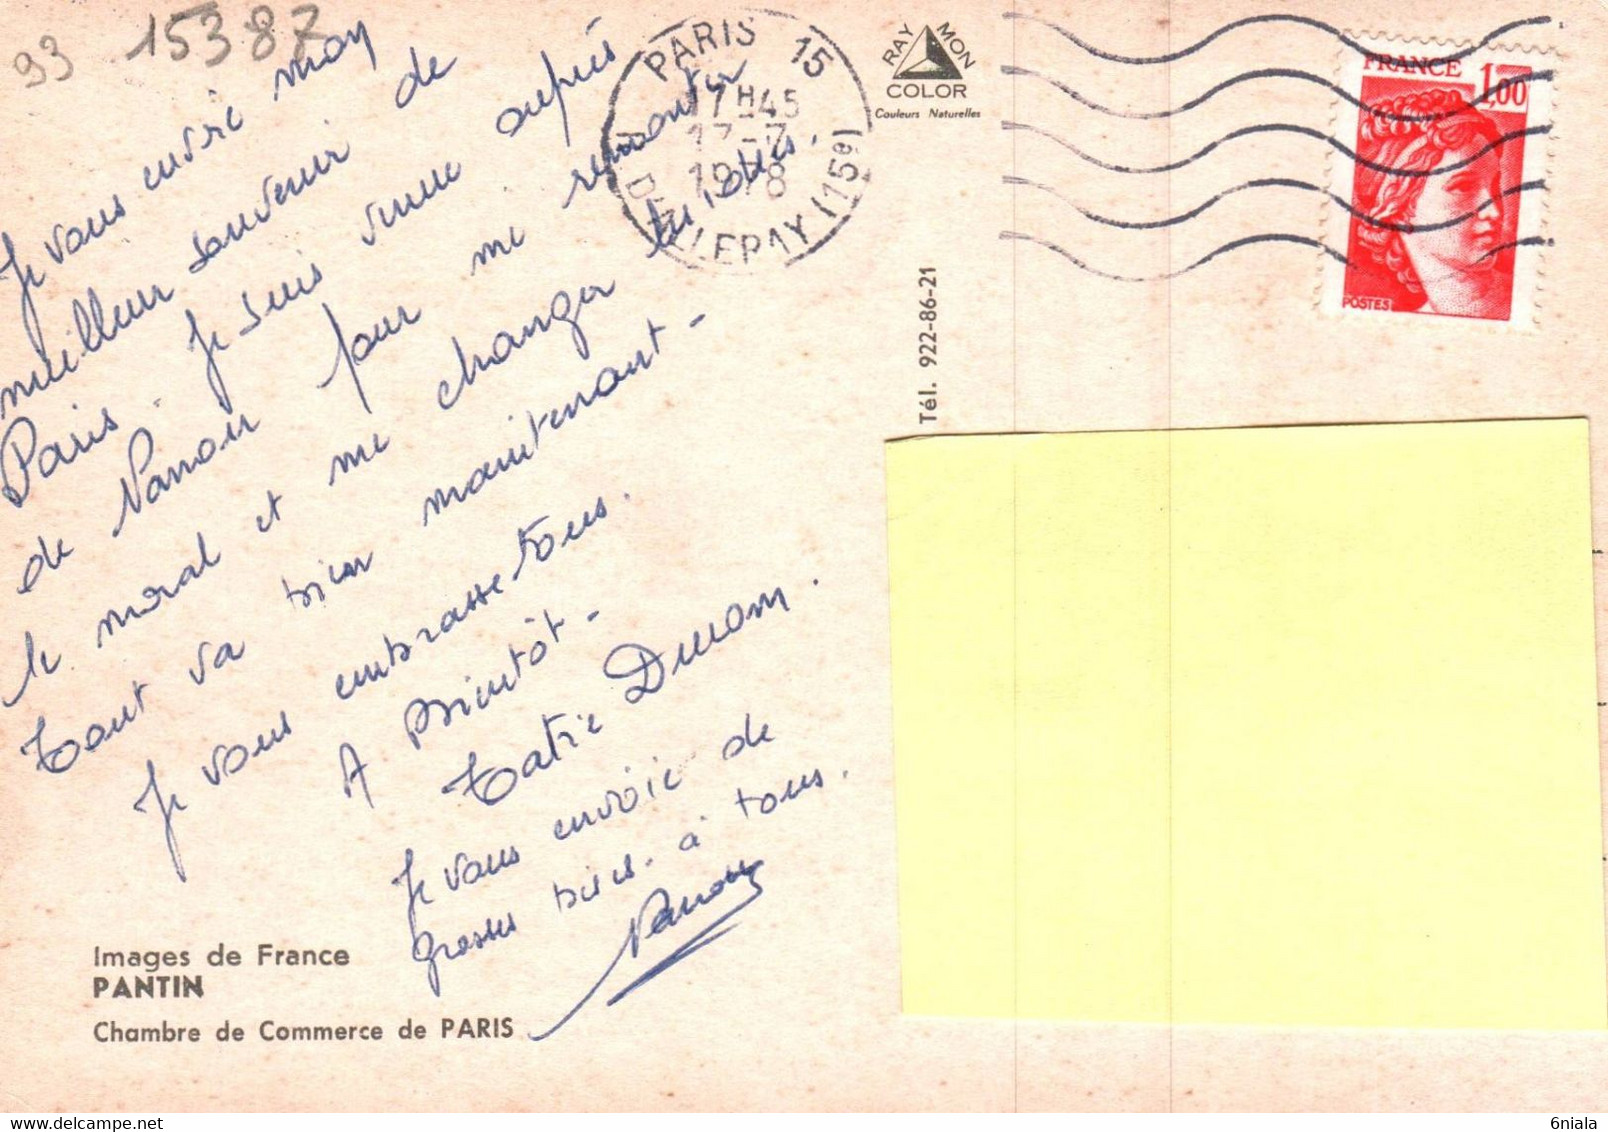 93 15387
Je vous envoie mon
meilleur souvenir de
Paris. Je suis venue auprès
de Nanou pour me remonter
le moral et me changer les idées.
Tout va bien maintenant -
Je vous embrasse tous.
A Bientôt -
Tatie
Je vous envoie de
grosses bises à tous.
Nanou
Images de France
PANTIN
Chambre de Commerce de PARIS
PARIS 15
17H45
17-7
1978
(15e)
RAYMON
COLOR
Couleurs Naturelles
Tél. 922-86-21
FRANCE 1,00
POSTES
6niala